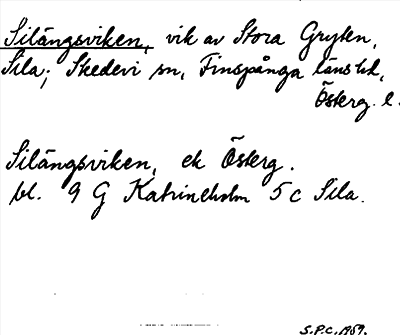 Silängsviken, vik av Stora Gryten,
Sila; Skedevi sn, Finspånga länshd,
Österg. l.
Silängsviken, ek Österg.
bl. 9 G Katrineholm 5 c Sila.
S.P.C. 1959.